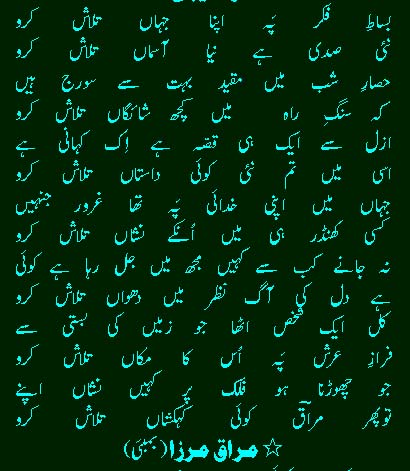 بساطِ فکر پہ اپنا جہاں تلاش کرو
نئی صدی ہے نیا آسماں تلاش کرو
حصارِ شب میں مقید بہت سے سورج ہیں
کہ سنگِ راہ میں کچھ شائگاں تلاش کرو
ازل سے ایک ہی قصہ ہے اِک کہانی ہے
اسی میں تم نئی کوئی داستاں تلاش کرو
جہاں میں اپنی خدائی پہ تھا غرور جنہیں
کسی کھنڈر ہی میں اُنکے نشاں تلاش کرو
نہ جانے کب سے کہیں مجھ میں جل رہا ہے کوئی
ہے دل کی آگ نظر میں دھواں تلاش کرو
کل ایک شخص اٹھا جو زمیں کی بستی سے
فرازِ عرش پہ اُس کا مکاں تلاش کرو
جو چھوڑنا ہو فلک پر کہیں نشاں اپنے
تو پھر مراقؔ کوئی کہکشاں تلاش کرو
☆ مراق مرزا (بمبئی)